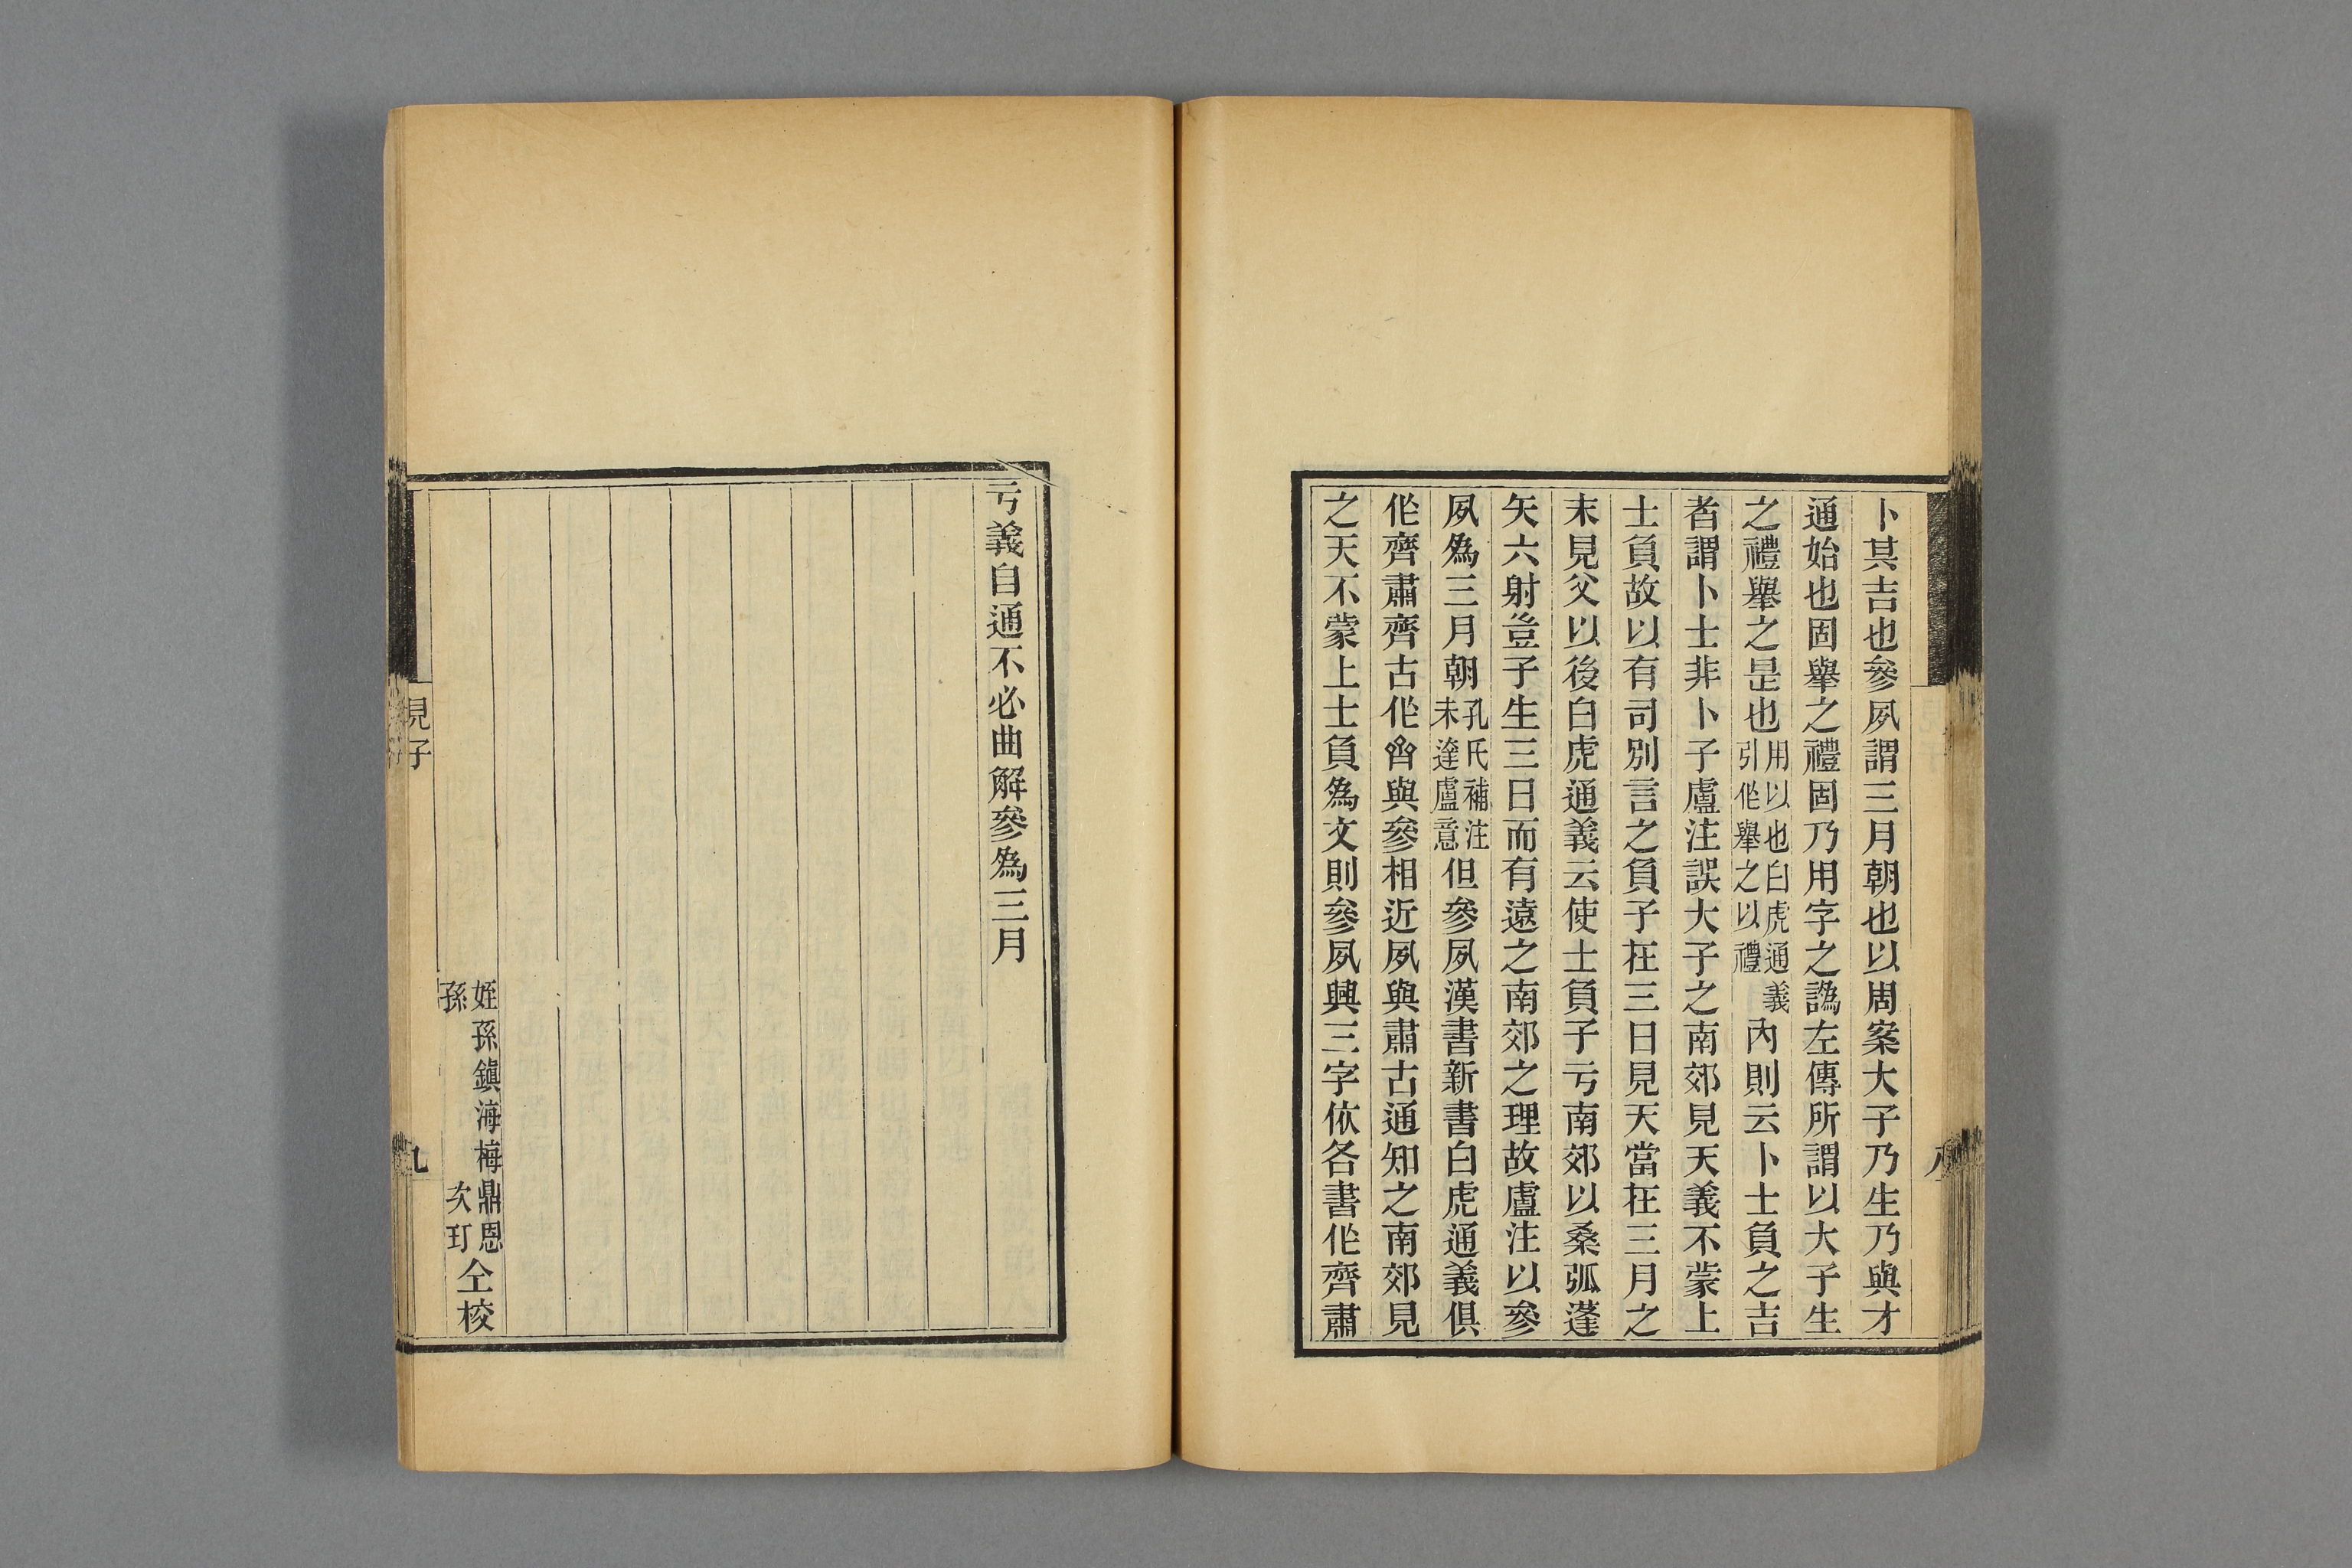 卜其吉也參夙謂三月朝也以周案大子乃生乃與才
通始也固舉之禮固乃用字之譌左傳所謂以大子生
之禮舉之是也用以也白虎通義引作舉之以禮內則云卜士負之吉
者謂卜士非卜子盧注誤大子之南郊見天義不蒙上
士負故以有司別言之負子在三日見天當在三月之
末見父以後白虎通義云使士負子亏南郊以桑弧蓬
矢六射豈子生三日而有遠之南郊之理故盧注以參
夙為三月朝孔氏補注未達盧意但參夙漢書新書白虎通義俱
作齊肅齊古作與參相近夙與肅古通知之南郊見
之天不蒙上士負為文則參夙興三字依各書作齊肅
八
亏義自通不必曲解參為三月
姪孫鎮海梅鼎恩
孫次玎
仝校
九